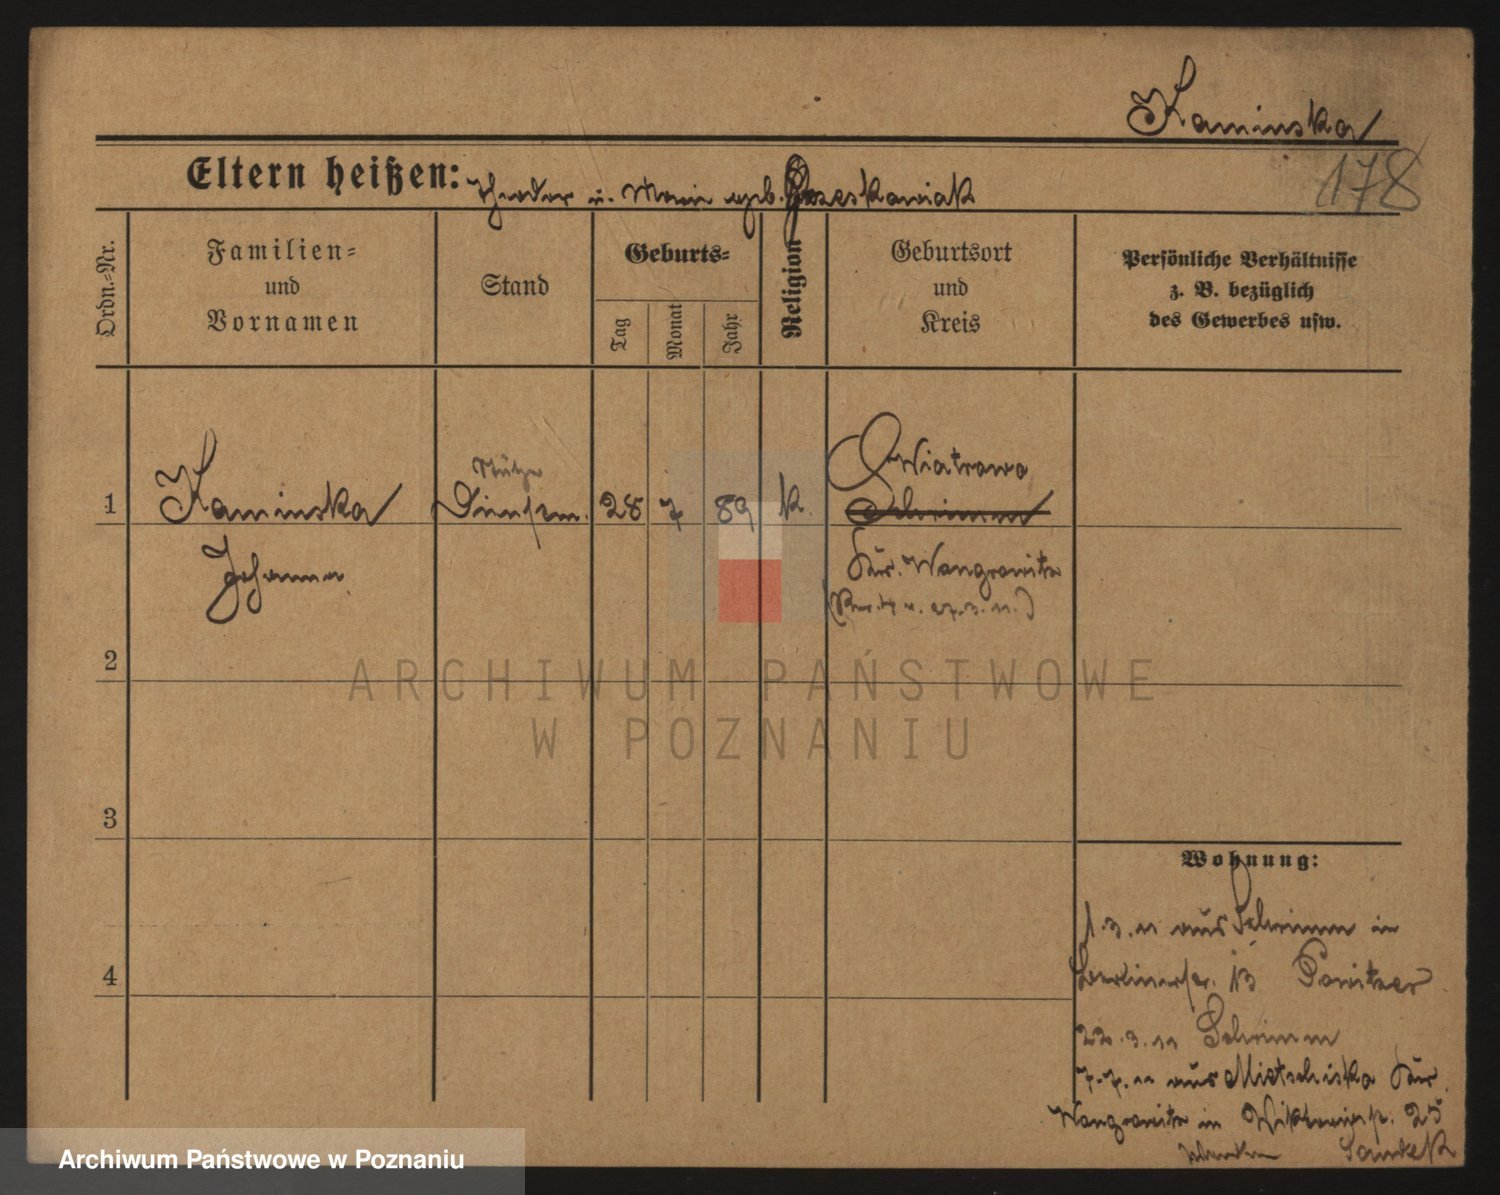 Kaminska
178
Eltern heißen: Theodor u. Marie geb. Grzeskowiak
Ordn.-Nr.
Familien-
und
Vornamen
Stand
Geburts-
Tag
Monat
Jahr
Religion
Geburtsort
und
Kreis
Persönliche Verhältnisse
z. B. bezüglich
des Gewerbes usw.
Stütze
Wiatrowo
1 Kaminska Dienstm. 28 7 89 k. Schrimm
Johanna
Kr. Wongrowitz
27.3.11.)
2
ARCHIWUM PAŃSTWOWE
W POZNANIU
3
Wohnung:
1.3.11 aus Schrimm in
Berlinerstr. 13 Ponitzer
4
22.3.11 Schrimm
7.7.11 aus Mietschiska Kr.
Wongrowitz in Viktoriastr. 25
Sandek
Archiwum Państwowe w Poznaniu